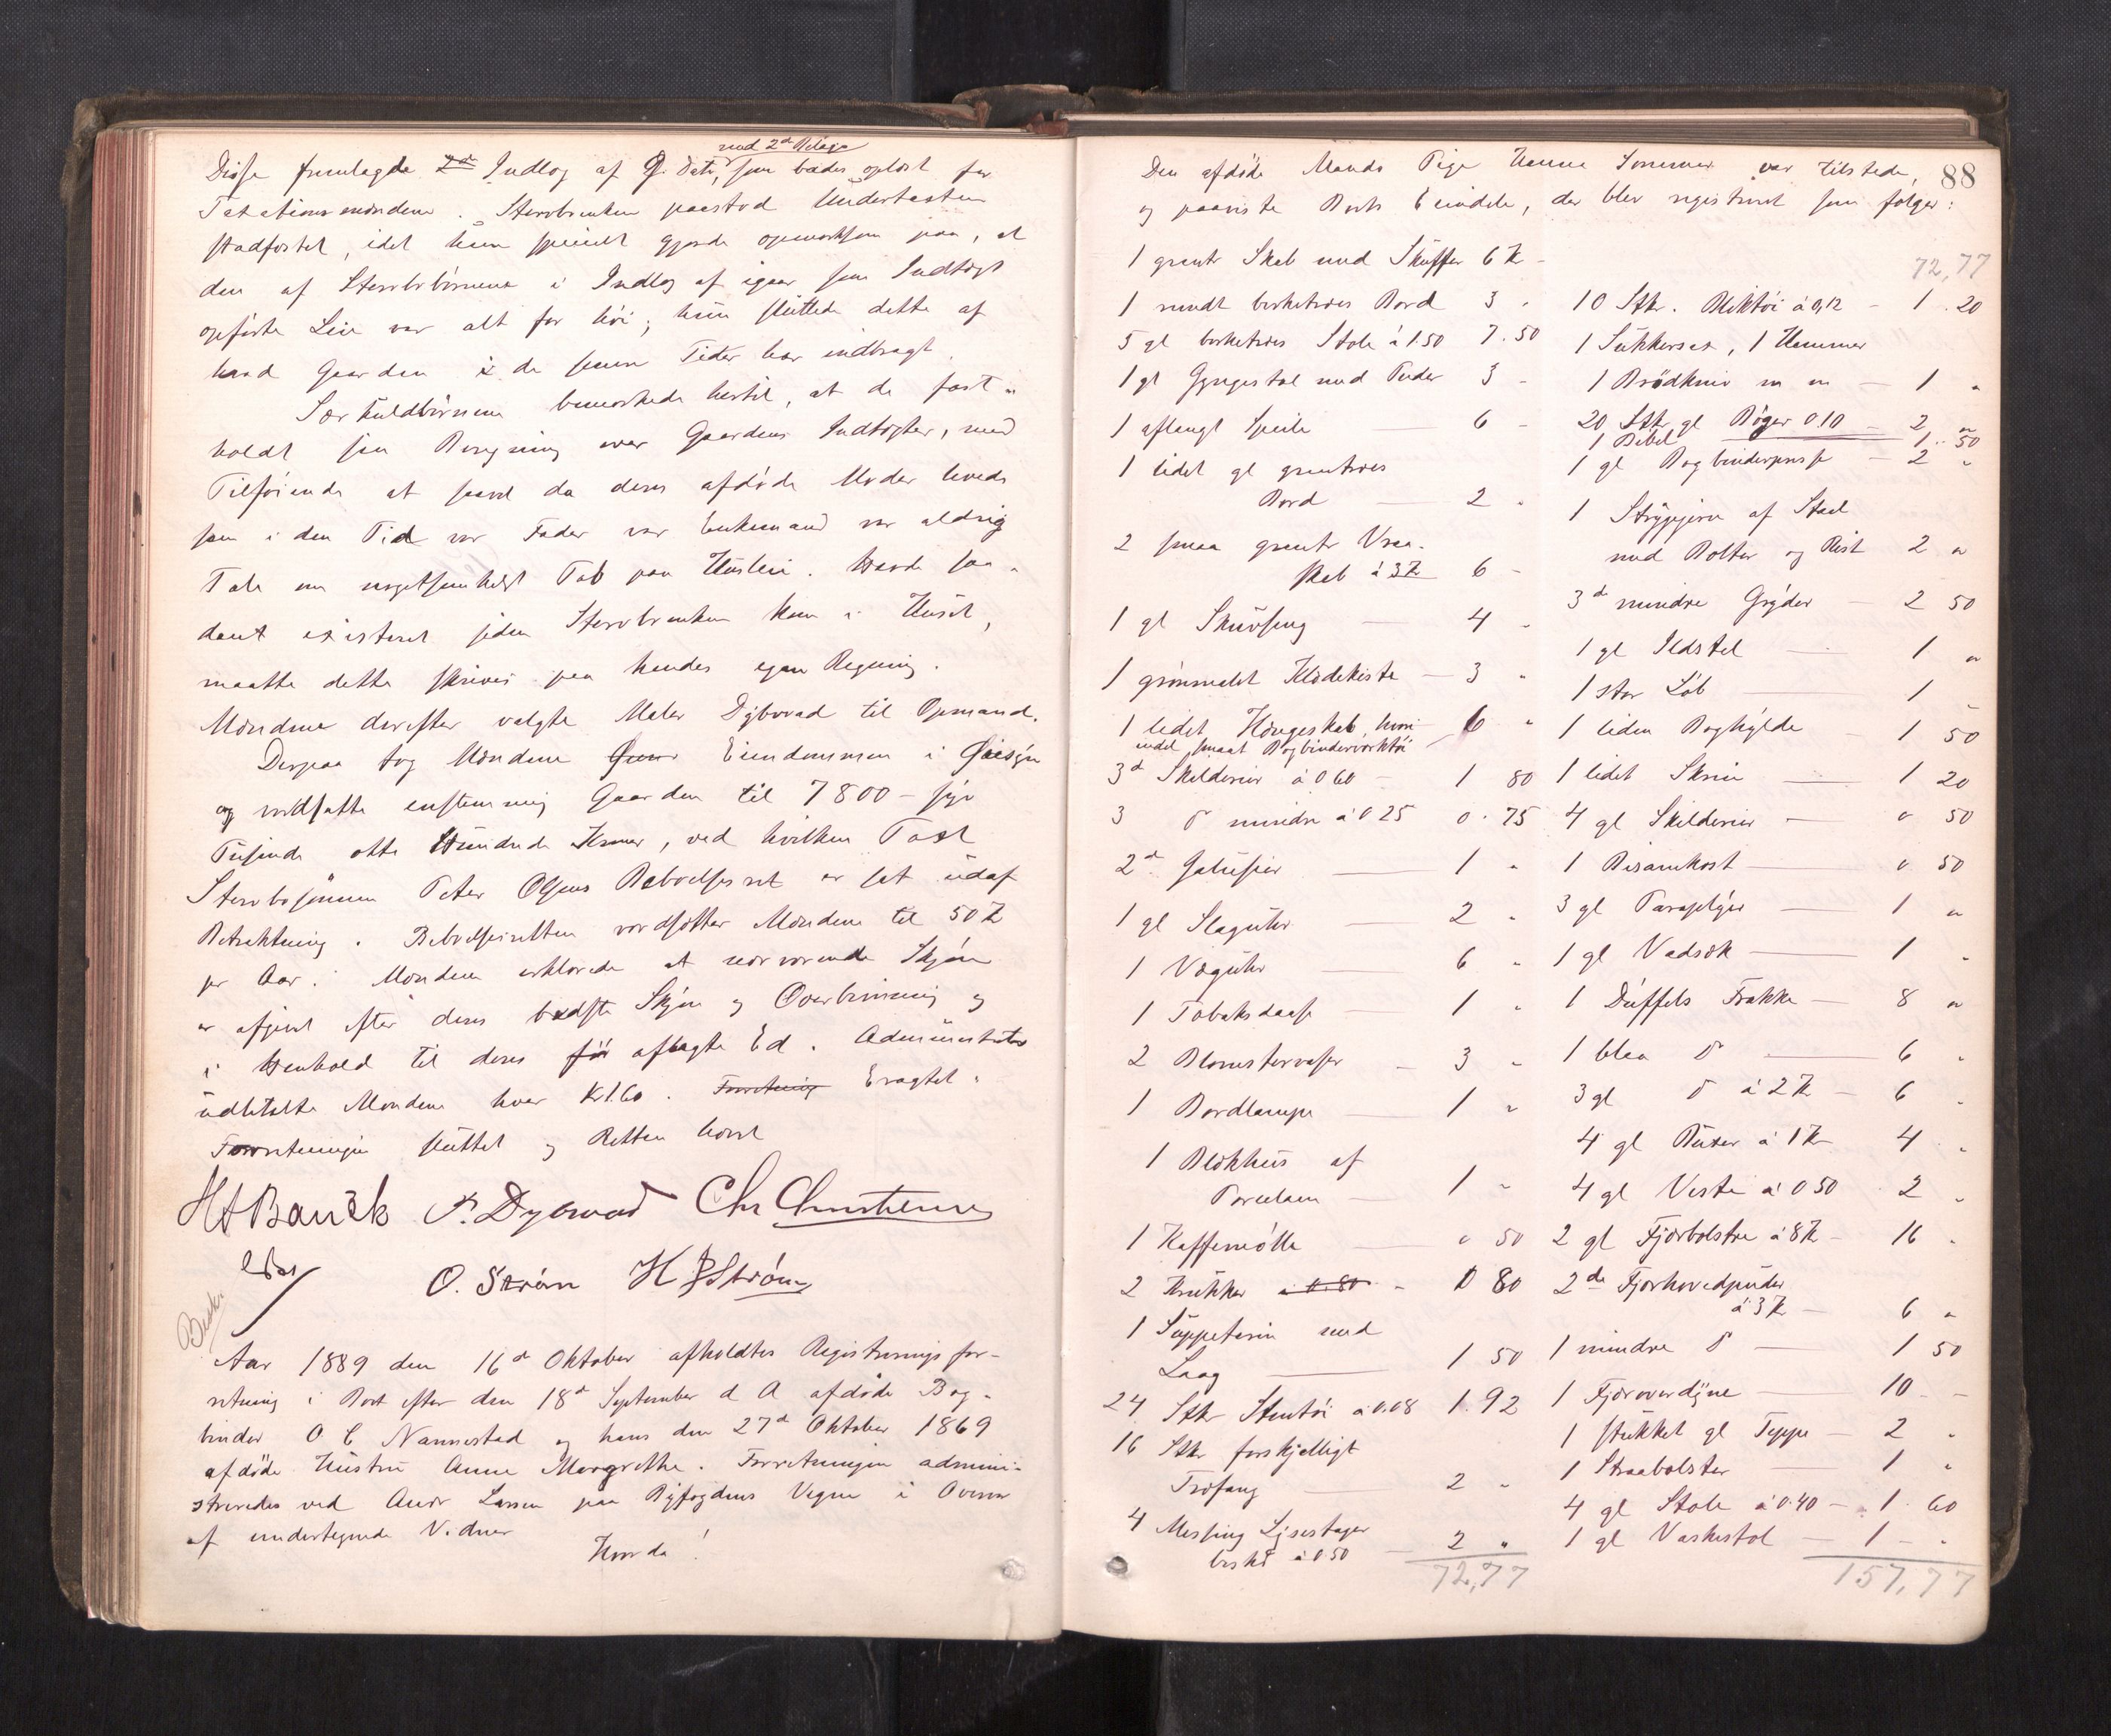 med 2de Bilage
Disse fremlagde 2de Indlæg af D. Dato, som bades oplæst for
Taxationsmændene. Stervbenken paastod Undertaxten
stadfæstet, idet hun specielt gjorde opmærksom paa, at
den af Stervbbørnene i Indlæg af igaar som Indtægt
opførte Leie var alt for høi; hun støttede dette af
hvad Gaarden i de senere Tider har indbragt.
Særkuldbørnene bemærkede hertil, at de fast-
holdt sin Beregning over Gaardens Indtægter, med
Tilføiende at saavel da deres afdøde Moder levede
som i den Tid vor Fader var Enkemand var aldrig
Tale om nogetsomhelst Tab paa Husleie. Havde saa-
dant existeret siden Stervbenken kom i Huset,
maatte dette skrives paa hendes egen Regning.
Mændene derefter valgte Maler Dybvad til Opmand.
Derpaa tog Mændene Eiendommen i Øiesyn
og værdsatte enstemmig Gaarden til 7800 – syv
Tusinde otte Hundrede Kroner, ved hvilken Taxt
Stervbosønnen Peter Olsens Beboelsesret er sat udaf
Betraktning. Beboelsesretten værdsætter Mændene til 50 Kr
pr Aar. Mændene erklærede at nærværende Skjøn
er afgivet efter deres bedste Skjøn og Overbevisning og
i Henhold til deres før aflagte Ed. Administrator
udbetalte Mændene hver Kr 1.60. Forretning Eragtet:
Forretningen sluttet og Retten hævet
H A Bauck P. Dybwad Chr Christensen
O. Strøm H P Strøm
Aar 1889 den 16de Oktober afholdtes Registreringsfor-
retning i Boet efter den 18de September d A afdøde Bog-
binder O C Nannestad og hans den 27de Oktober 1869
afdøde Hustru Anne Margrethe. Forretningen admini-
streredes ved Andr Larsen paa Byfogdens Vegne i Overvær
af undertegnede Vidner
Hvorda!
88
Den afdøde Mands Pige Hanne Sommer var tilstede,
og paaviste Boets Eiendele, der blev registreret som følger:
1 grantr Skab med Skuffer 6 Kr –
1 rundt birketræes Bord 3 "
5 gl birketræes Stole à 1.50 7.50
1 gl Gyngestol med Puder 3 –
1 aflangt Speile 6 –
1 lidet gl grantræes
Bord 2 "
2 smaa grantr Vraa-
skab à 3 Kr 6 –
1 gl Skuvseng 4 "
1 grønmalet Klædekiste – 3 "
1 lidet Hængeskab, hvori 6 "
endel smaat Bogbinderverktøi
3de Skilderier à 0 60 – 1 80
3 do mindre à 0 25 0.75
2de Galusier 1 "
1 gl Slaguhr 2 "
1 Væguhr 6 "
1 Tobaksdaase 1 "
2 Blomstervaser – 3 "
1 Bordlampe 1 "
1 Blækhus af
Porcelæn 1 "
1 Kaffemølle 0 50
2 Krukker à 0.80 – 0 80
1 Suppeterin med
Laag 1 50
24 Stkr Stentøi à 0.08 1.92
16 Stkr forskjelligt
Træfang 2 "
4 Messing Lysestager
beskd à 0 50 – 2 "
72,77
72,77
10 Stkr. Bliktøi à 0,12 – 1.20
1 Sukkersax, 1 Hammer
1 Brødkniv m m – 1 "
20 Stkr gl Bøger 0.10 – 2 "
1 Bibel 1.50
1 gl Bogbinderpresse – 2 "
1 Strygejern af Staal
med Bolter og Rist 2 "
3de mindre Gryder – 2 50
1 gl Ildstel 1 "
1 stor Løb 1 "
1 liden Boghylde 1 50
1 lidet Skrin 1 20
4 gl Skilderier 0 50
1 Bisamkost 0 50
3 gl Paraplyer 1 "
1 gl Vadsæk 1 "
1 Duffels Frakke – 8 "
1 blaa do 6 "
3 gl do à 2 Kr – 6 "
4 gl Buxer à 1 Kr 4 "
4 gl Veste à 0 50 2 "
2 gl Fjærbolstre à 8 Kr – 16 "
2de Fjærhovedpuder
à 3 Kr – 6 "
1 mindre do 1 50
1 Fjæroverdyne 10 –
1 stukket gl Teppe – 2 "
1 Straabolster 1 "
4 gl Stole à 0.40 – 1.60
1 gl Vaskestol – 1 – "
157,77